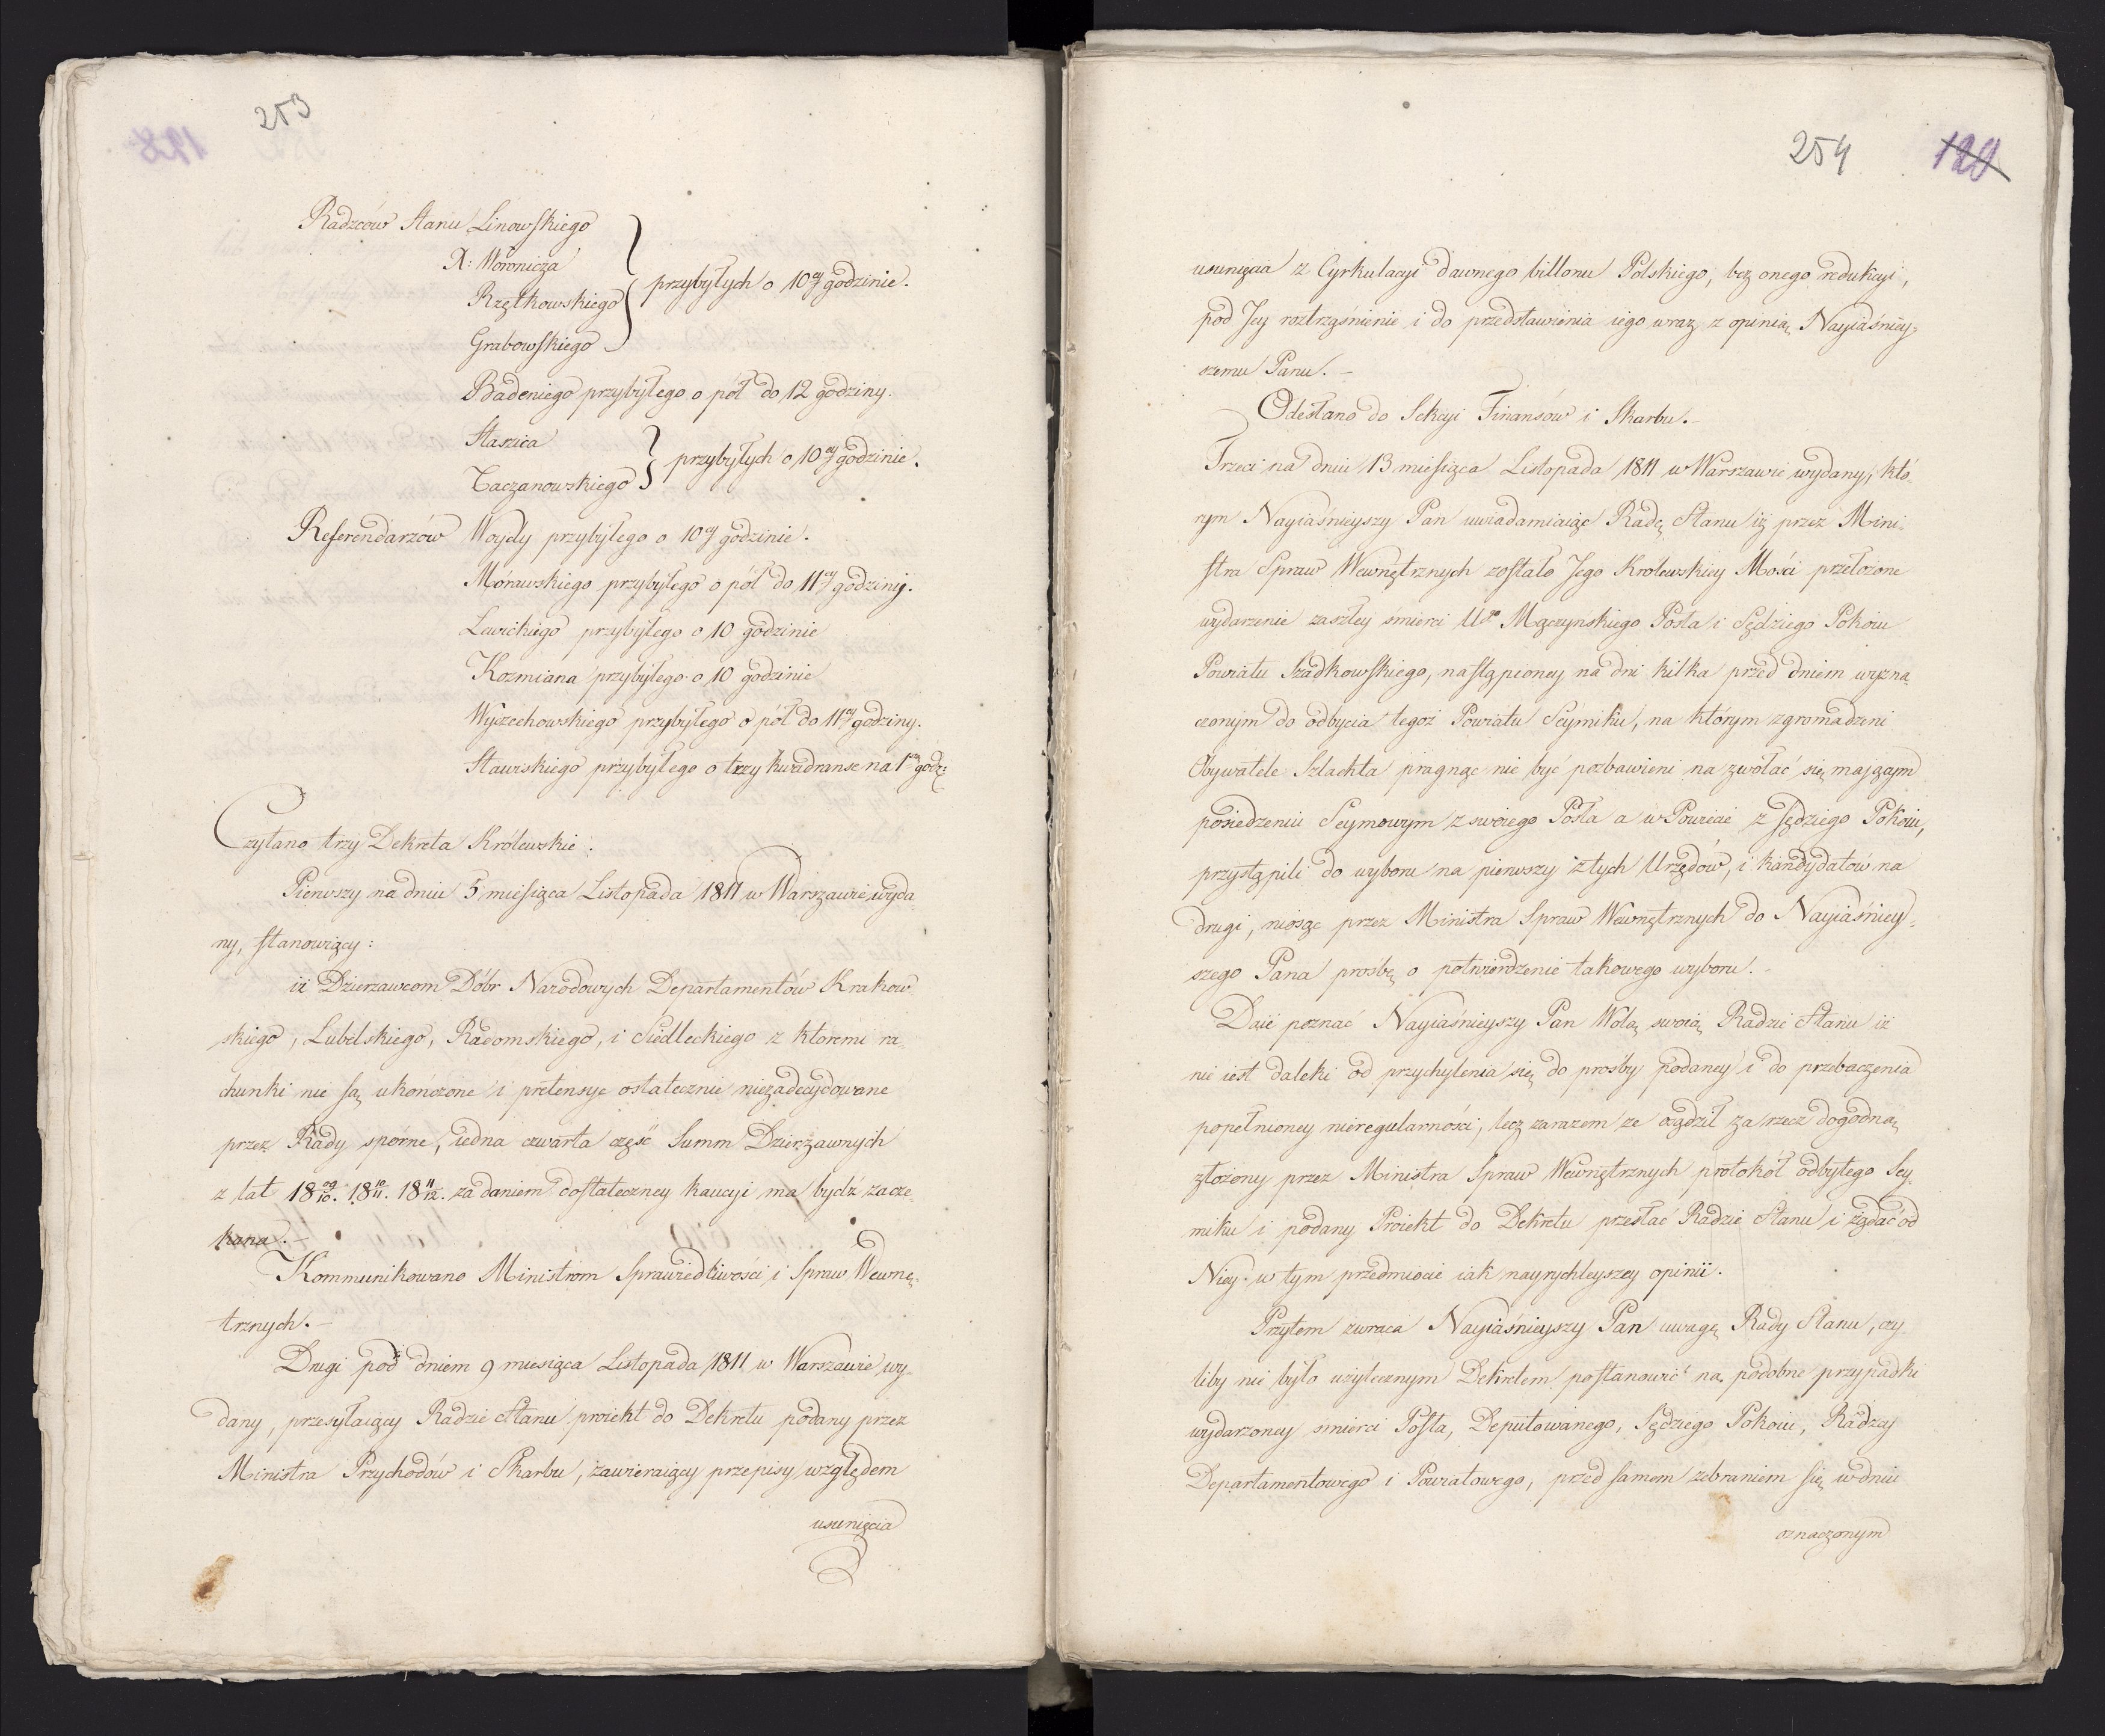 253
Radzców Stanu Linowskiego
X: Woronicza
Rzętkowskiego
przybyłych o 10ey godzinie.
Grabowskiego
Badeniego przybyłego o pół do 12 godziny.
Staszica
Taczanowskiego
przybyłych o 10ey godzinie.
Referendarzów Woydy przybyłego o 10ey godzinie.
Mórawskiego przybyłego o pół do 11ey godziny.
Lewickiego przybyłego o 10 godzinie
Kozmiana przybyłego o 10 godzinie
Wyczechowskiego przybyłego o pół do 11ey godziny.
Stawiskiego przybyłego o trzy kwadranse na 1szą godz:
Czytano trzy Dekreta Królewskie:
Pierwszy na dniu 5 miesiąca Listopada 1811 w Warszawie wyda
ny, stanowiący:
iż Dzierzawcom Dóbr Narodowych Departamentów Krakow
skiego, Lubelskiego, Radomskiego, i Siedleckiego z ktoremi ra-
chunki nie są ukończone i pretensye ostatecznie niezadecydowane
przez Rady sporne, iedna czwarta część Summ Dzierżawnych
z lat 18 09/10. 18 10/11. 18 11/12. za daniem dostateczney kaucyi ma bydź zacze-
kana.-
Kommunikowano Ministrom Sprawiedliwości i Spraw Wewnę-
trznych.-
Drugi pod dniem 9 miesiąca Listopada 1811 w Warszawie wy-
dany, przesyłaiący Radzie Stanu proiekt do Dekretu podany przez
Ministra Przychodów i Skarbu, zawieraiący przepisy względem
usunięcia
254
129
usunięcia z Cyrkulacyi dawnego billonu Polskiego, bez onego redukcyi,
pod Jey roztrząśnienie i do przedstawienia iego wraz z opinią Nayiaśniey-
szemu Panu.-
Odesłano do Sekcyi Finansów i Skarbu.-
Trzeci na dniu 13 miesiąca Listopada 1811 w Warszawie wydany, któ-
rym Nayiaśnieyszy Pan uwiadamiaiąc Radę Stanu iż przez Mini-
stra Spraw Wewnętrznych zostało Jego Królewskiey Mości przełożone
wydarzenie zaszłey śmierci Ugo Mączynskiego Posła i Sędziego Pokoiu
Powiatu Szadkowskiego, nastąpioney na dni kilka przed dniem wyzna-
czonym do odbycia tegoż Powiatu Seymiku, na którym zgromadzeni
Obywatele Szlachta pragnąc nie być pozbawieni na zwołać się maiącym
posiedzeniu Seymowym z swoiego Posła a w Powiecie z Sędziego Pokoiu,
przystąpili do wyboru na pierwszy z tych Urzędów, i kandydatów na
drugi, niosąc przez Ministra Spraw Wewnętrznych do Nayiaśniey-
szego Pana prośbę o potwierdzenie takowego wyboru.-
Daie poznać Nayiaśnieyszy Pan Wolą swoią Radzie Stanu iż
nie iest daleki od przychylenia się do prosby podaney i do przebaczenia
popełnioney nieregularności, lecz zarazem ze osądził za rzecz dogodną
złożony przez Ministra Spraw Wewnętrznych protokół odbytego Sey-
miku i podany Proiekt do Dekretu przesłać Radzie Stanu i żądać od
Niey w tym przedmiocie iak nayrychleyszey opinii.
Przytem zwraca Nayiaśnieyszy Pan uwagę Rady Stanu, czy
liby nie było użytecznym Dekretem postanowić na podobne przypadki
wydarzoney smierci Posła, Deputowanego, Sędziego Pokoiu, Radzcy
Departamentowego i Powiatowego, przed samem zebraniem się w dniu
oznaczonym